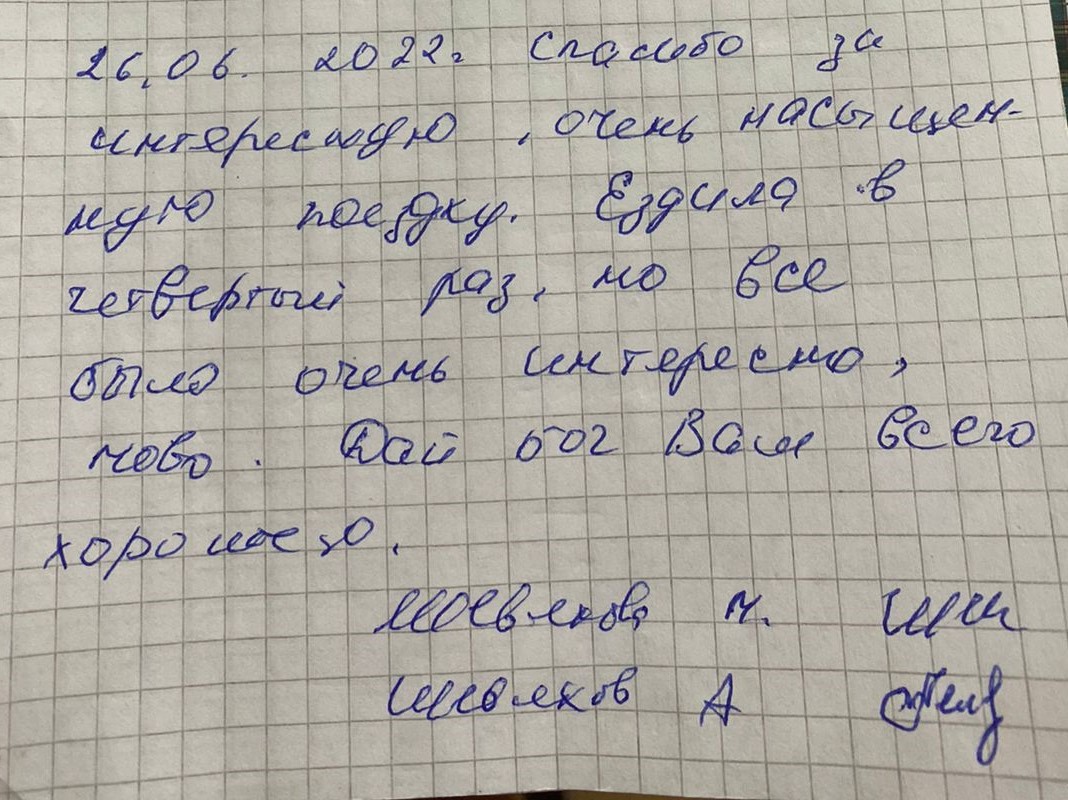 26.06. 2022г Спасибо за
интересную, очень насыщен-
ную поездку. Ездила в
четвертый раз, но все
было очень интересно,
ново. Дай бог Вам всего
хорошего.
М.
А